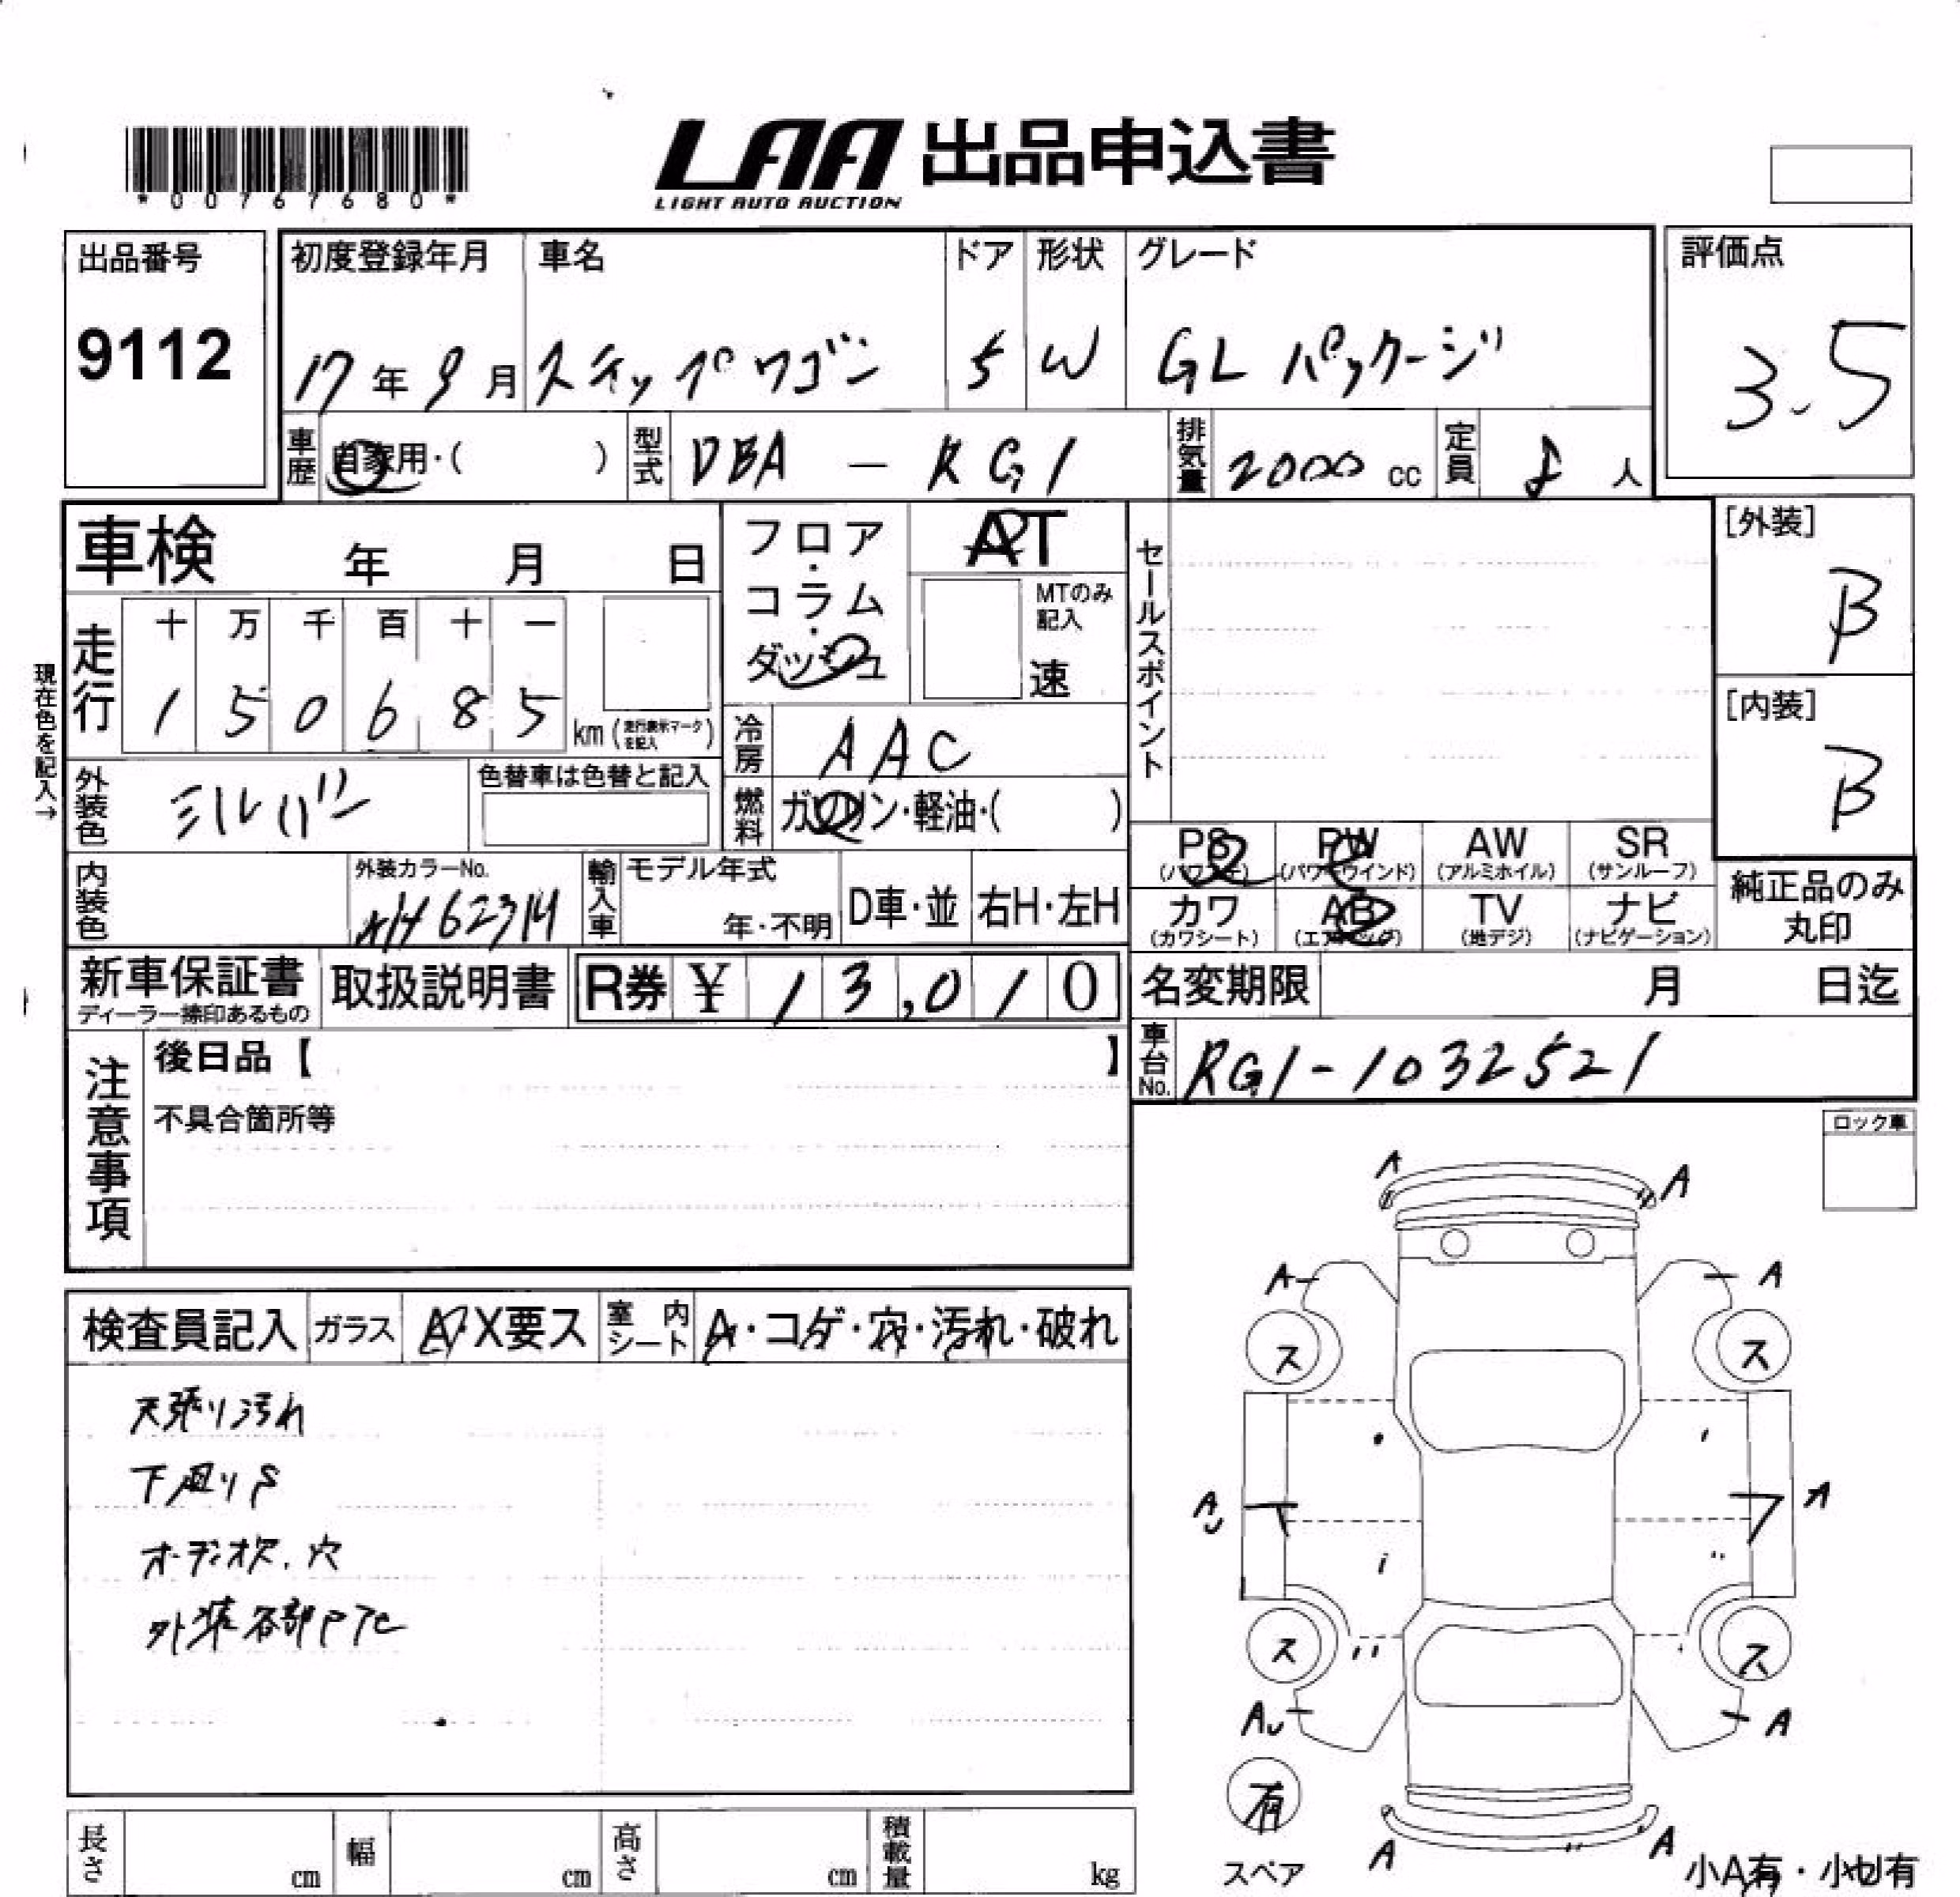 LAA 出品申込書
LIGHT AUTO AUCTION
*00767680*
出品番号
9112
初度登録年月 車名 ドア 形状 グレード
17年9月 ステップワゴン 5 W GLパッケージ
評価点
3.5
車歴 自家用・( ) 型式 DBA-RG1 排気量 2000cc 定員 8人
車検 年 月 日
フロア・コラム・ダッシュ
AT
MTのみ記入
速
セールスポイント
[外装]
B
[内装]
B
現在色を記入→
走行 十 万 千 百 十 一
1 5 0 6 8 5 km (走行表示マークを記入)
冷房 AAC
外装色 シルバー 色替車は色替と記入
燃料 ガソリン・軽油・( )
PS PW AW SR
(パワステ) (パワーウインド) (アルミホイル) (サンルーフ)
カワ AB TV ナビ
(カワシート) (エアバッグ) (地デジ) (ナビゲーション)
純正品のみ丸印
内装色 外装カラーNo. 輸入車 モデル年式 年・不明 D車・並 右H・左H
新車保証書 取扱説明書 R券 ¥ 13,010
ディーラー捺印あるもの
名変期限 月 日迄
車台No. RG1-1032521
注意事項
後日品【 】
不具合箇所等
ロック車
検査員記入 ガラス A・X要ス 室内シート A・コゲ・穴・汚れ・破れ
天張り汚れ
下廻りS
オーディオ欠、穴
外装各部
A A
A A
ス ス
AU A
ス ス
AU A
有
スペア
A A
小A有・小U有
長さ cm 幅 cm 高さ cm 積載量 kg